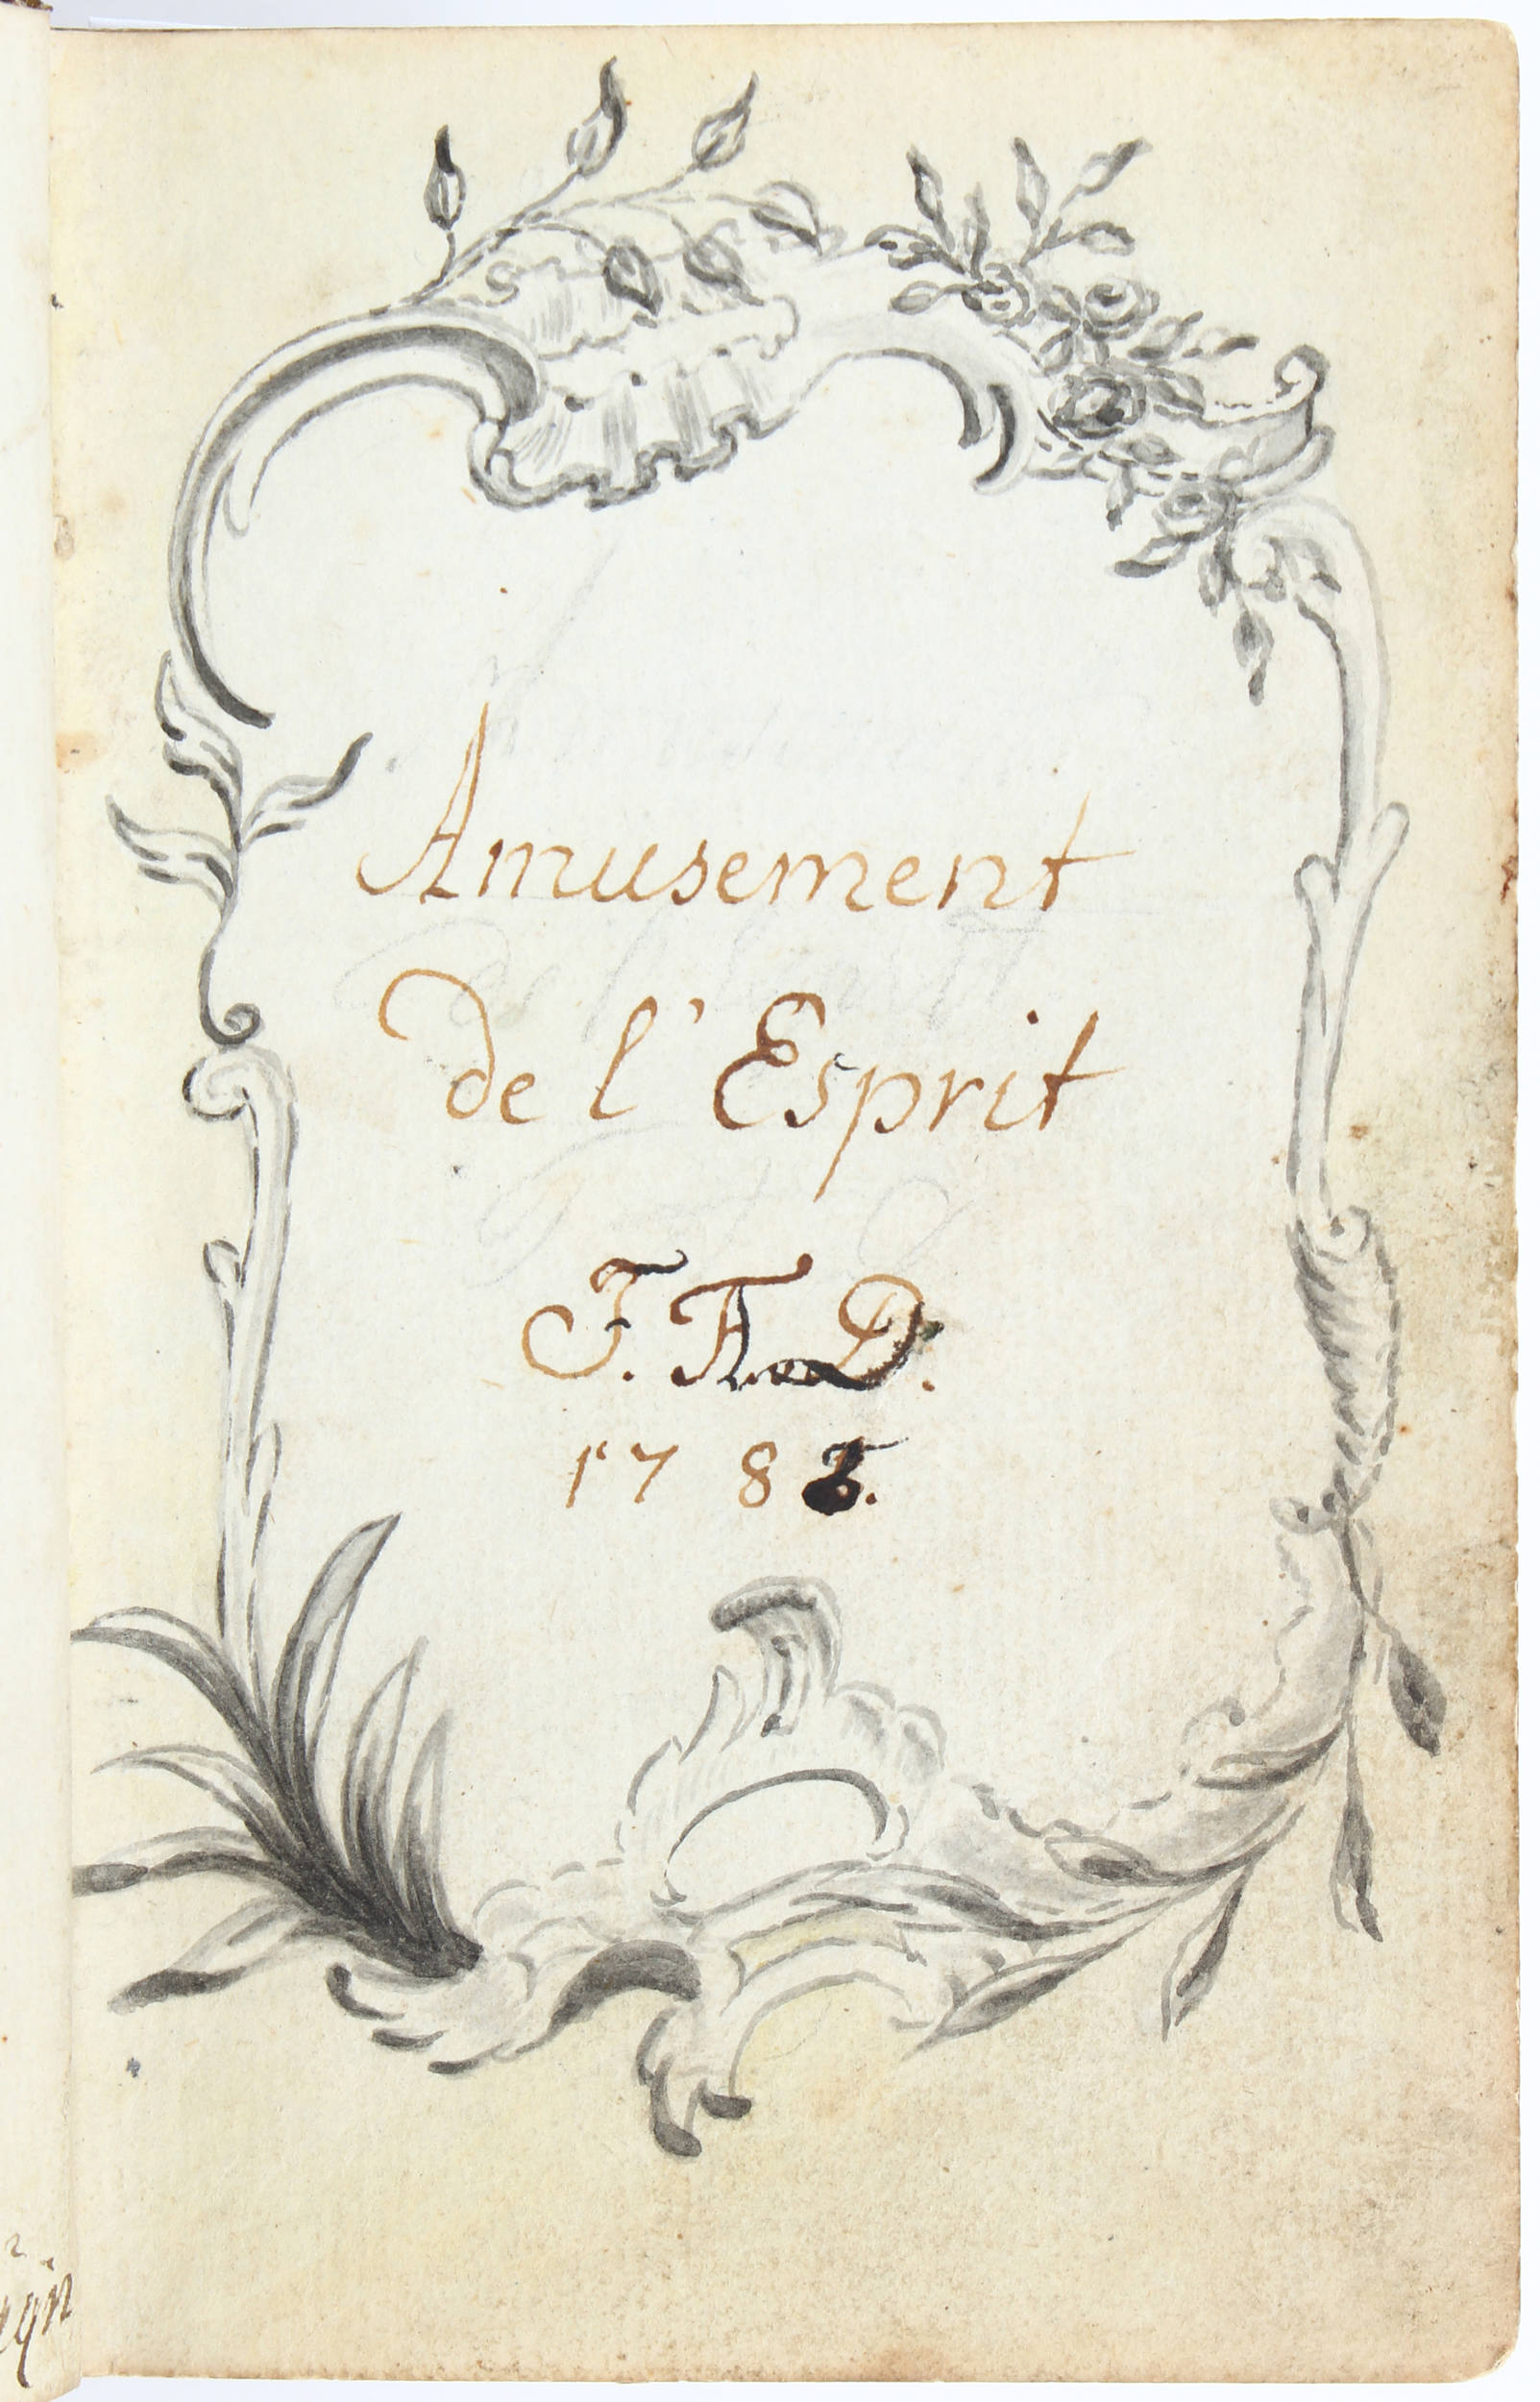 Amusement
de l'Esprit
J. A. D.
178